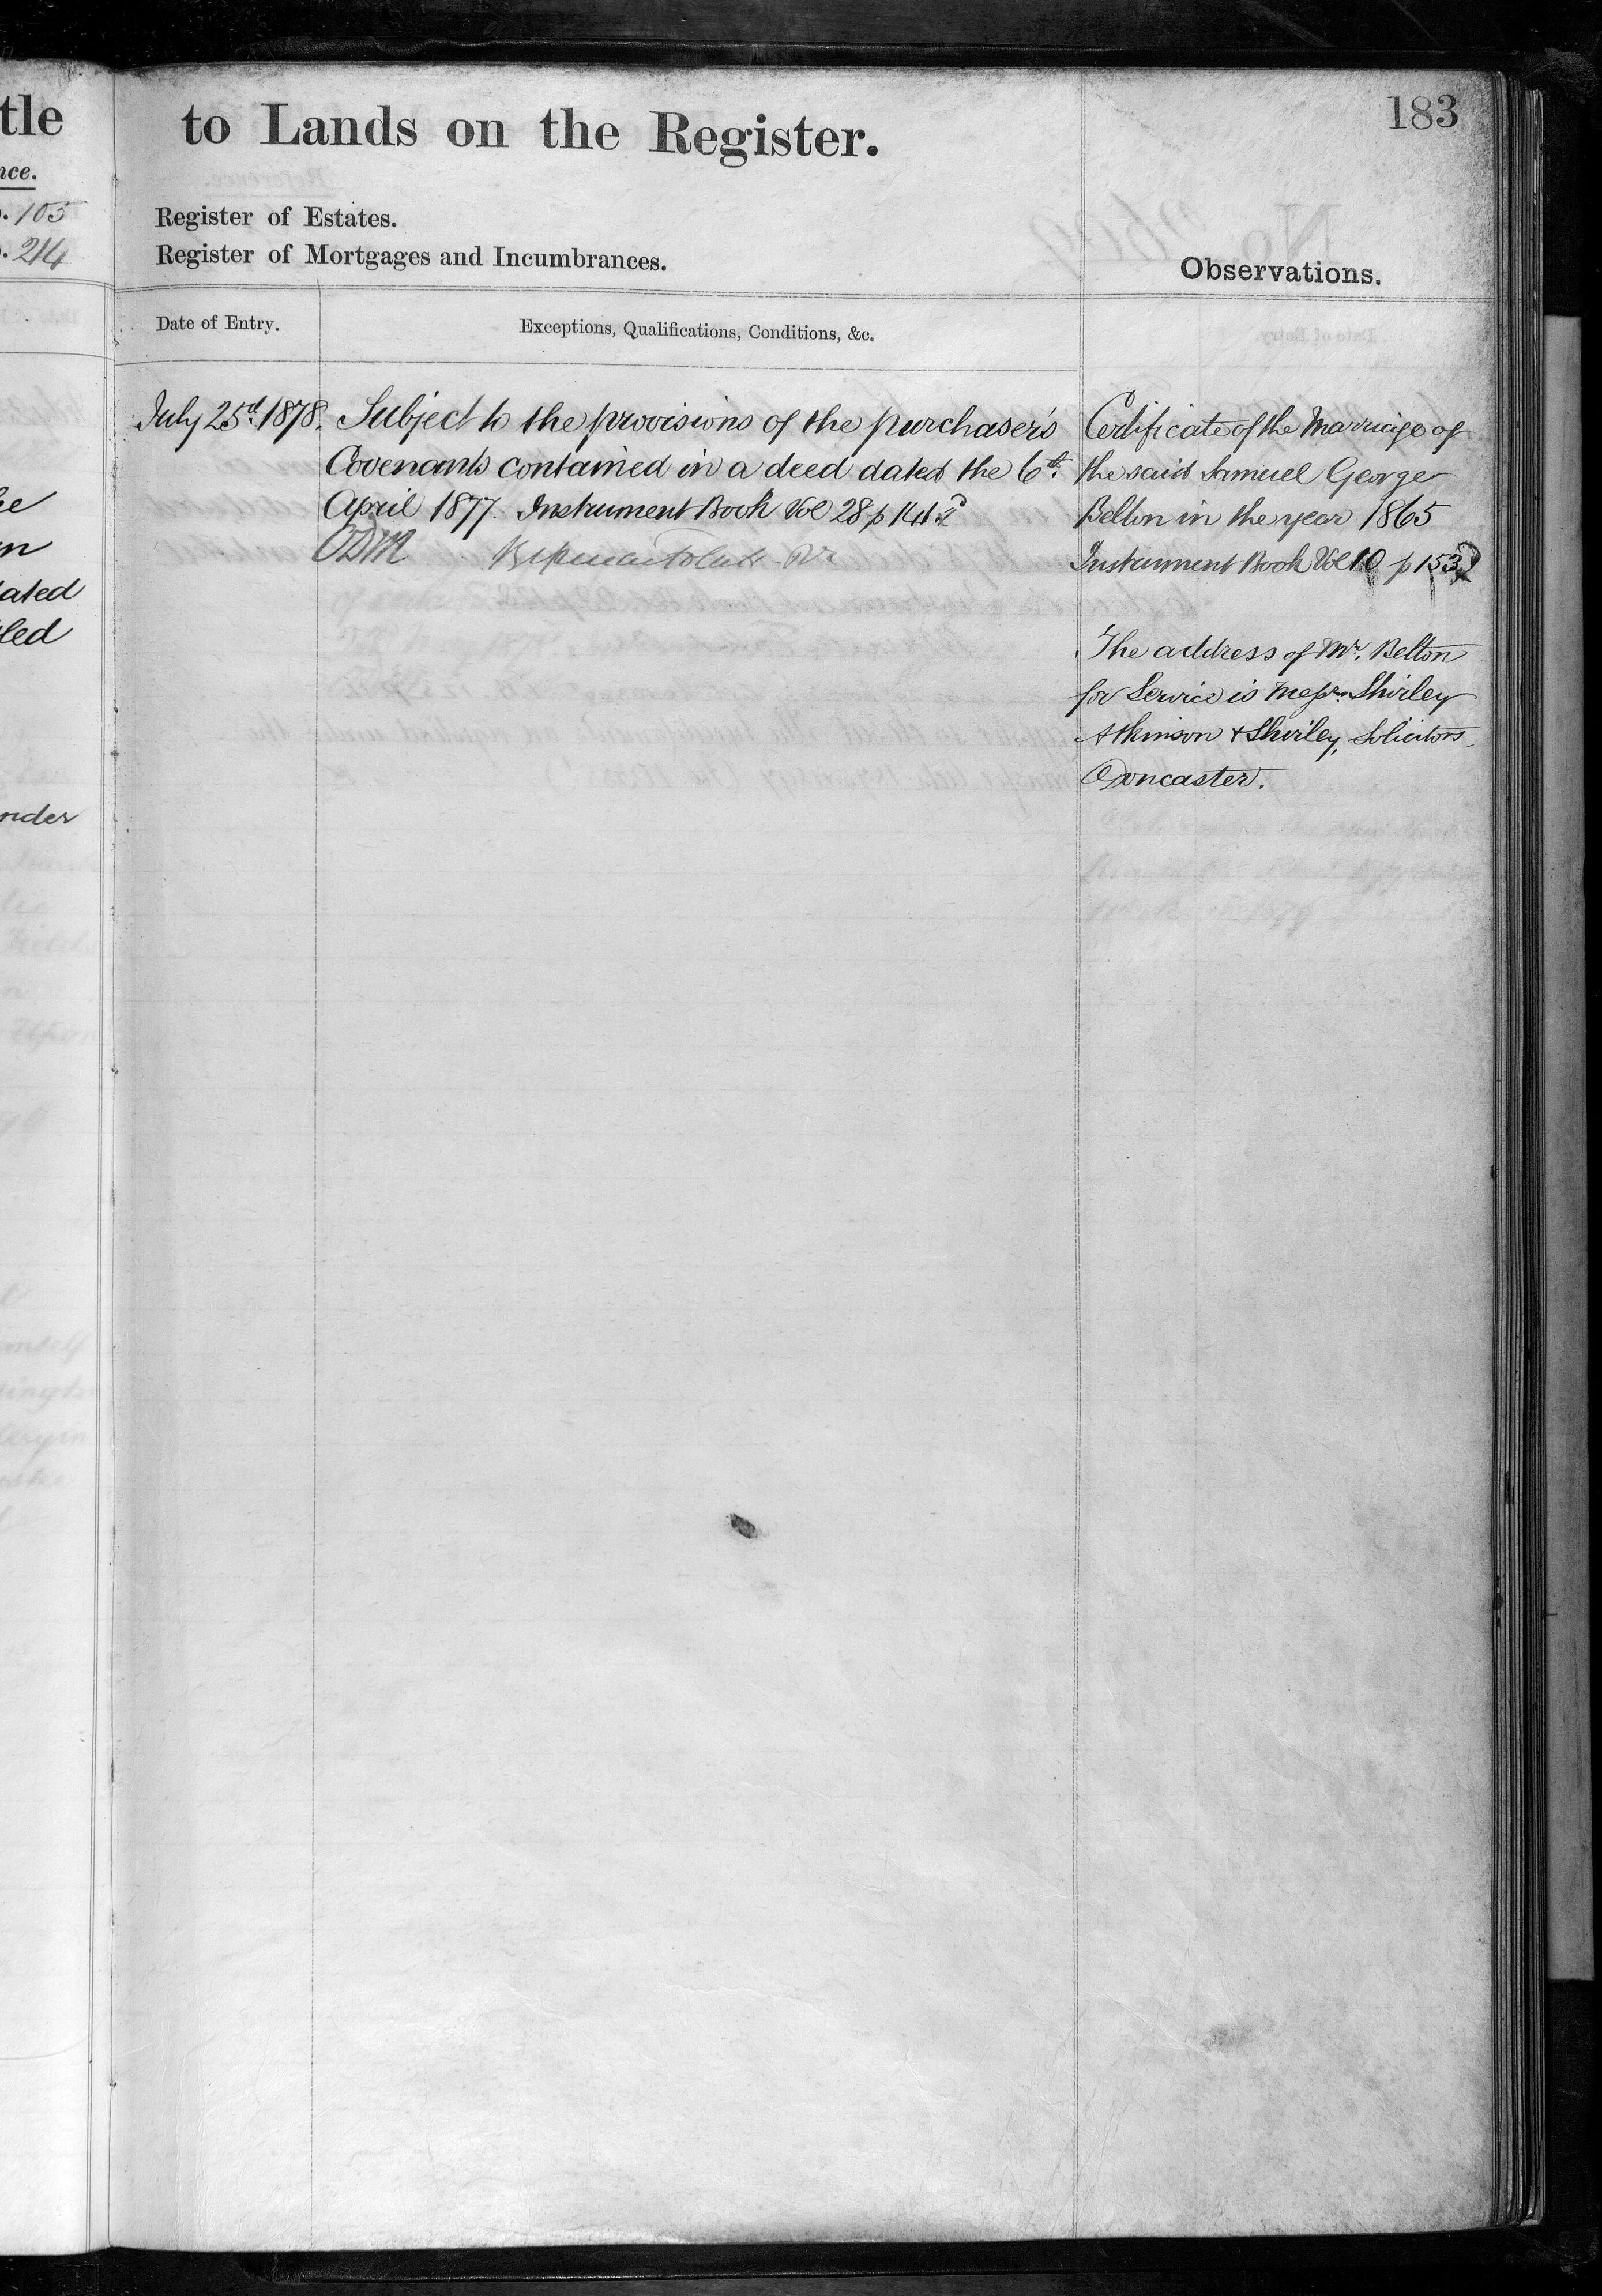 tle
nce.
. 105
. 214
ated
led
nder
to Lands on the Register.
183
Register of Estates.
Register of Mortgages and Incumbrances.
Observations.
Date of Entry.
Exceptions, Qualifications, Conditions, &c.
July 25th 1878.
Subject to the provisions of the purchaser's
Covenants contained in a deed dated the 6th
April 1877. Instrument Book Vol 28 p
ODM
Certificate of the Marriage of
the said Samuel George
Belton in the year 1865
Instrument Book Vol 10 p 153
The address of Mr. Belton
for Service is Messrs. Shirley
Atkinson & Shirley, Solicitors,
Doncaster.